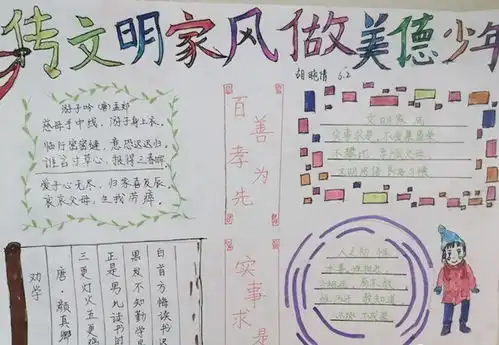 传文明家风做美德少年
胡晓倩 6.2
游子吟（唐）孟郊
慈母手中线，游子身上衣。
临行密密缝，意恐迟迟归。
谁言寸草心，报得三春晖。
爱子心无尽，归家喜及辰。
哀哀父母，生我劬瘁。
百善孝为先
实事求是
文明家风
孝敬父母
文明用语
劝学
唐·颜真卿
三更灯火五更鸡
正是男儿读书时
黑发不知勤学早
白首方悔读书迟
人之初 性